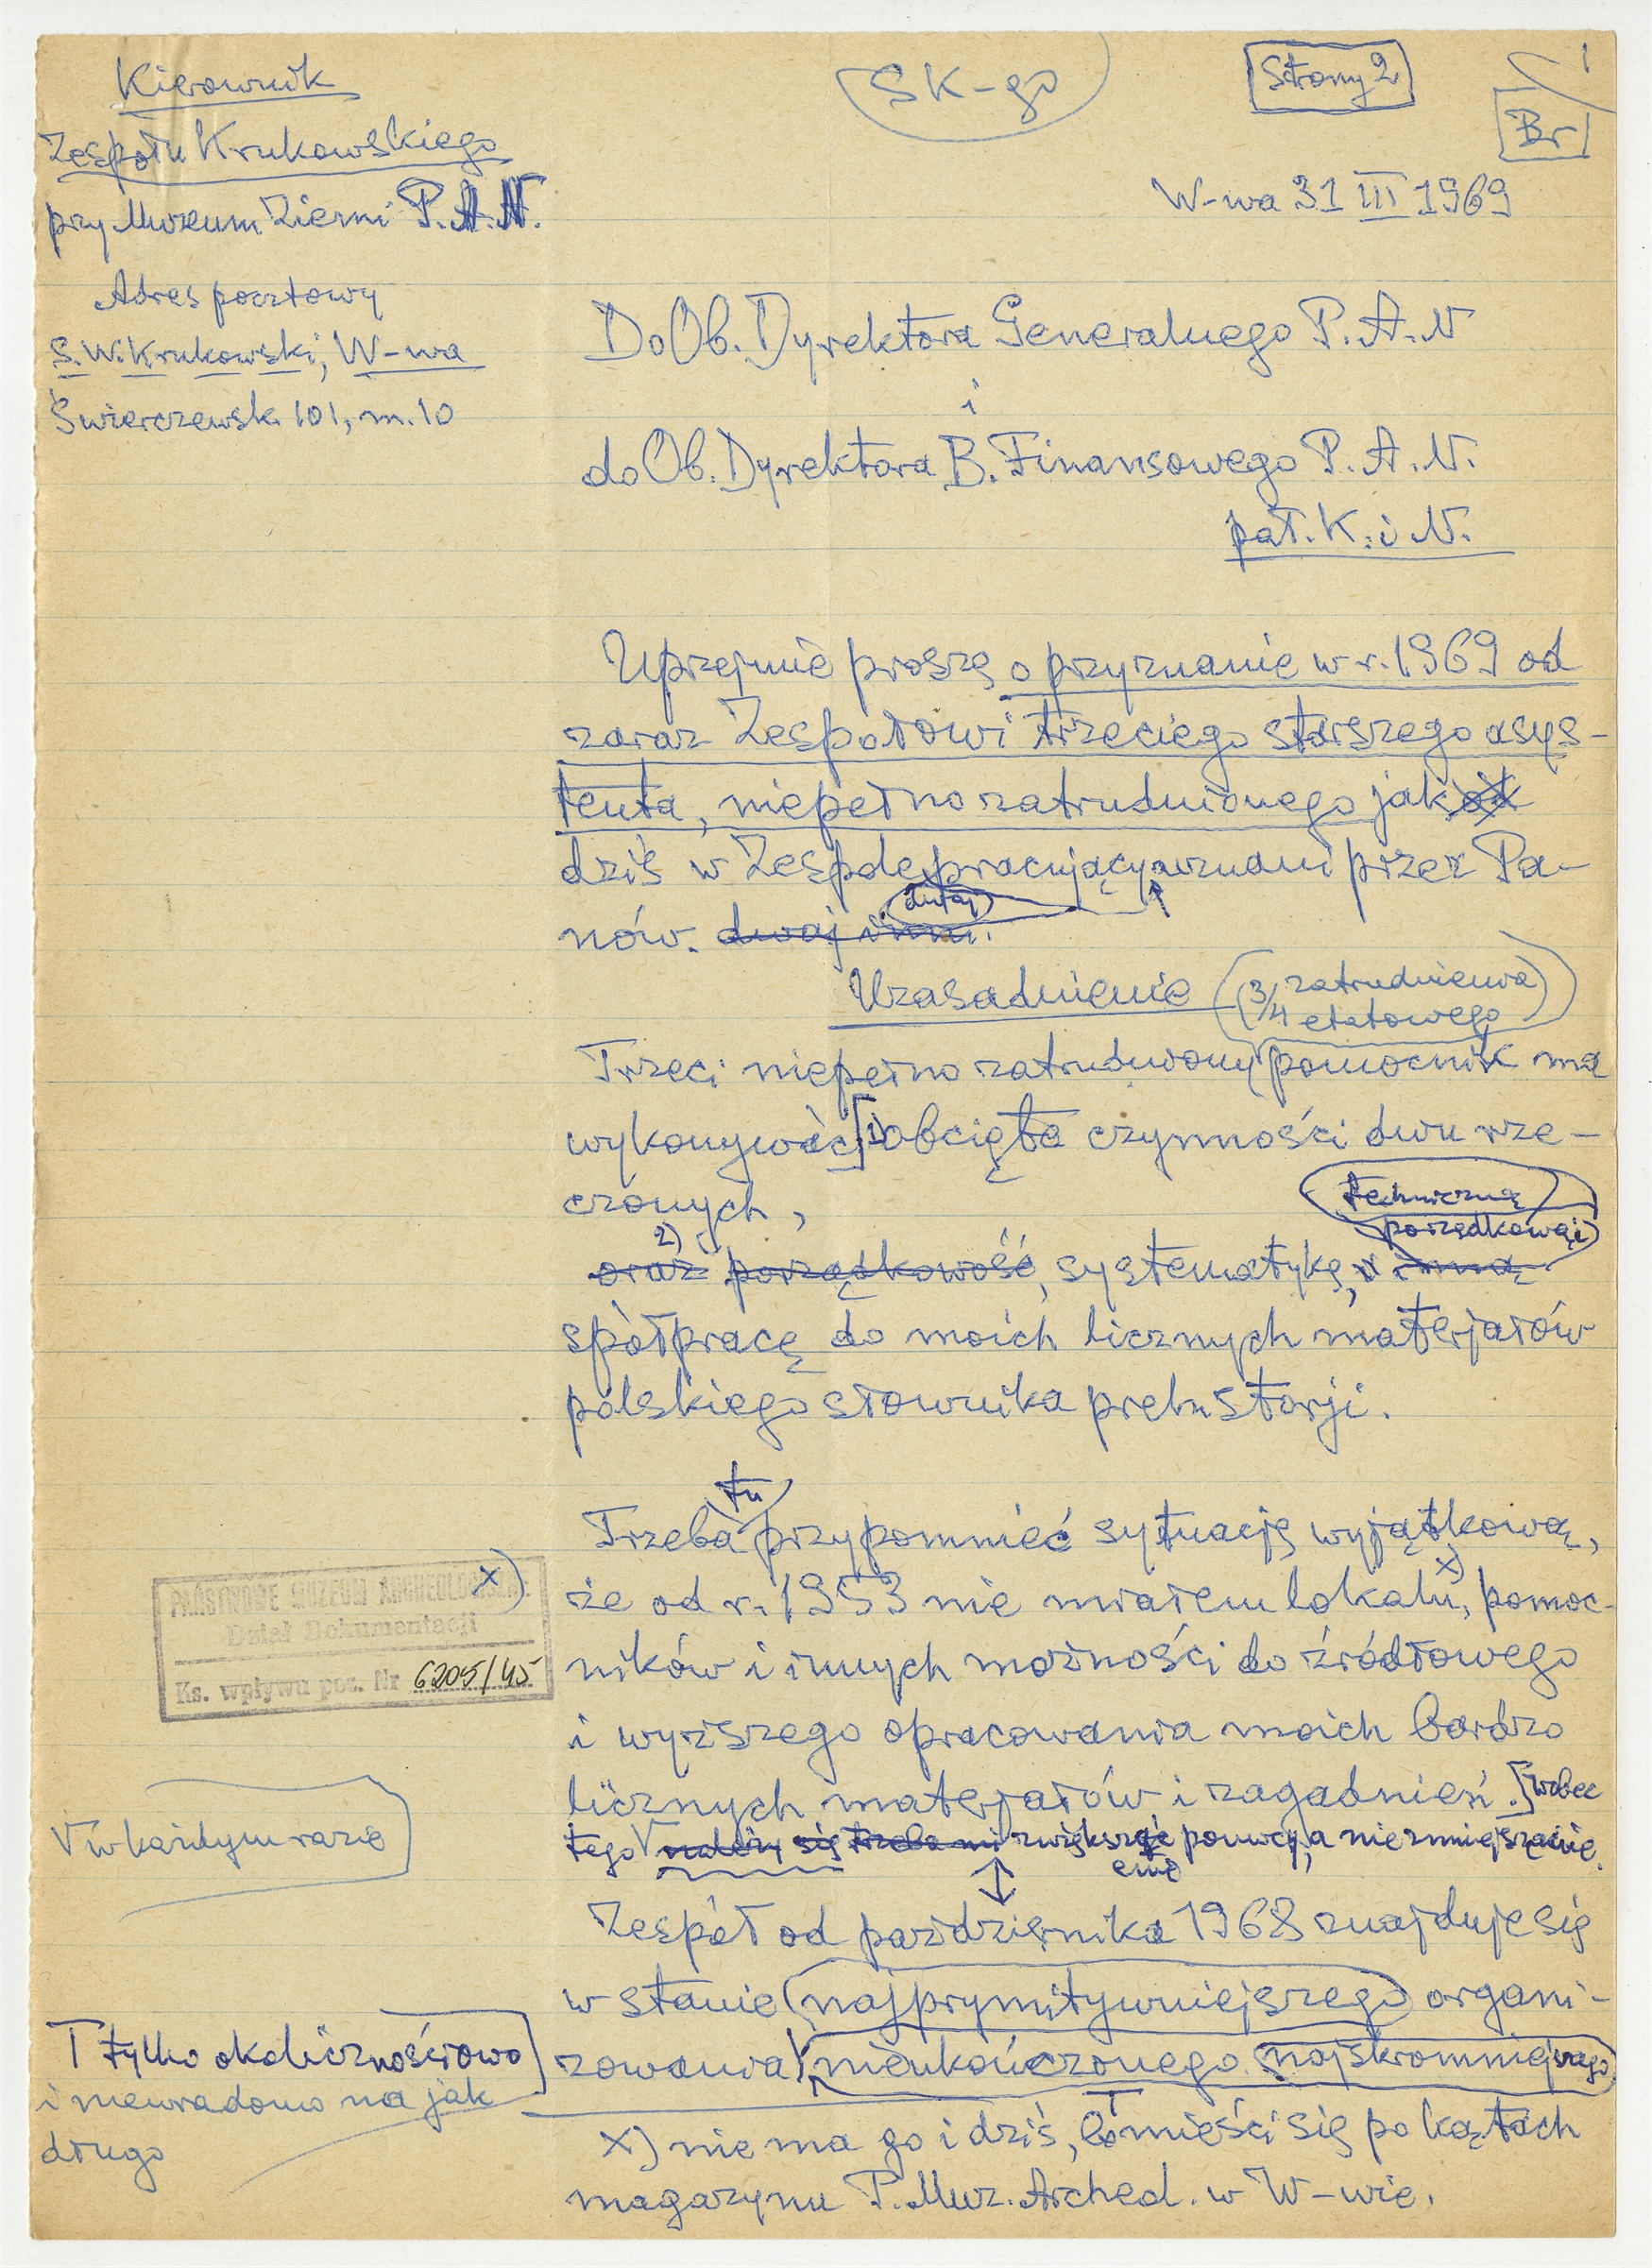 Kierownik
Zespołu Krukowskiego
przy Muzeum Ziemi P.A.N.
Adres pocztowy
S. W. Krukowski, W-wa
Świerczewsk. 101, m. 10
SK-go
Strony 2
1
Br
W-wa 31 III 1969
Do Ob. Dyrektora Generalnego P.A.N
i
do Ob. Dyrektora B. Finansowego P.A.N.
pał. K. i N.
Uprzejmie proszę o przyznanie w r. 1969 od
zaraz Zespołowi trzeciego starszego asys-
tenta, niepełno zatrudnionego jak
dziś w Zespole pracujący uznani przez Pa-
dwaj
nów. dwaj inni.
Uzasadnienie (3/4 zatrudnienia
etatowego)
Trzeci niepełno zatrudniony pomocnik ma
wykonywać 1) objęte czynności dwu rze-
czonych,
techniczną
porządkową i
2)
oraz porządkowość, systematykę, i inną
spółpracę do moich licznych materjałów
polskiego słownika prehistorji.
tu
Trzeba przypomnieć sytuację wyjątkową,
że od r. 1953 nie miałem lokalu x), pomoc-
ników i innych możności do źródłowego
i wyższego opracowania moich bardzo
licznych materjałów i zagadnień. [Wobec
tego V należy się trzeba mi zwiększenie pomocy, a nie zmniejszenie.
Zespół od października 1968 znajduje się
w stanie (najprymitywniejszego) organi-
zowania nieukończonego najskromniejszego
x) nie ma go i dziś, bo T mieści się po kątach
magazynu P. Muz. Archeol. w W-wie.
x)
PAŃSTWOWE MUZEUM ARCHEOLOGICZNE
Dział Dokumentacji
Ks. wpływu poz. Nr 6205/45
V w każdym razie
T tylko okolicznościowo
i niewiadomo na jak
długo